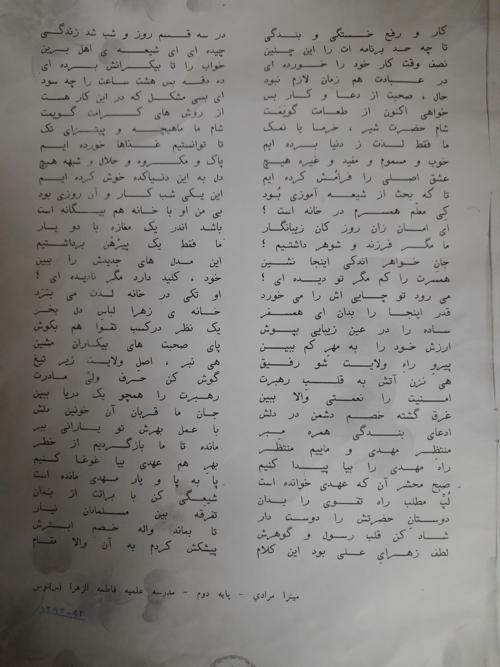 کار و رفع خستگی و بندگی در سه قسم روز و شب شد زندگی
تا چه حد برنامه ات را این چنین چیده ای ای شیعه ی اهل برین
نصف وقت کار خود را خورده ای خواب را تا بیکرانش برده ای
در عبادت هم زمان لازم نبود ده دقه بس هشت ساعت را چه سود
حال ، صحبت از دعا و کار بس ای بسی مشکل که در این کار هست
خواهی اکنون از طعامت گویَمَت از روش های کرامت گویمت
شام حضرت شیر ، خرما یا نمک شام ما ماهیچه و پیتزای تک
ما فقط لذت ز دنیا برده ایم تا توانستیم غذاها خورده ایم
خوب و مسموم و مفید و غیره هیچ پاک و مکروه و حلال و شبهه هیچ
عشق اصلی را فرامُش کرده ایم دل به این دنیاکده خوش کرده ایم
تا که بحث از شیعه آموزی بُود این یکی شب کار و آن روزی بود
کی معلم همسرم در خانه است ؟ بی من او با خانه هم بیگانه است
ای امان زان روز کان زیبانگار باشد اندر یک مغازه با دو یار
ما مگر فرزند و شوهر داشتیم ؟ ما فقط یک پیرُهَن برداشتیم
جان خواهر اندکی اینجا نشین این مدل های جدیدش را ببین
همسرت را کم مگر تو دیده ای ؟ خود ، کلید دارد مگر نادیده ای ؟
می رود تو چایی اش را می خورد او تکی در خانه لذت می بَرَد
قدر اینجا را بدان ای همسفر خانه ی زهرا لباس دل بخر
ساده را در عین زیبایی بپوش یک نظر درکسب تقوا هم بکوش
ارزش خود را به مهر کم ببین پای صحبت های بیکاران مشین
پیرو راه ولایت شو رفیق هی نبر ، اصل ولایت زیر تیغ
هی نزن آتش به قلب رهبرت گوش کن حرف ولیِّ مادرت
امنیت را نعمتی والا ببین رهبرت را همچو یک دریا ببین
غرق گشته خصم دشمن در دلش جان ما قربان آن خونین دلش
ادعای بندگی همره مبر با عمل بهرش تو یارانی ببر
منتظَر مهدی و ماییم منتظِر مانده تا ما بازگردیم از خطر
راه مهدی را بیا پیدا کنیم بهر هم عهدی بیا غوغا کنیم
صبح محشر آن که عهدی خوانده است پا به پا و یار مهدی مانده است
لُبّ مطلب راه تقوی را بدان شیعگی کن با برائت از بَدان
دوستان حضرتش را دوست دار تفرقه بین مسلمانان نیار
شاد کن قلب رسول و گوهرش تا بماند واله خصم ابترش
لطف زهرای علی بود این کلام پیشکش کردم به آن والا مقام
میترا مرادی - پایه دوم - مدرسه علمیه فاطمه الزهرا (س)نوس